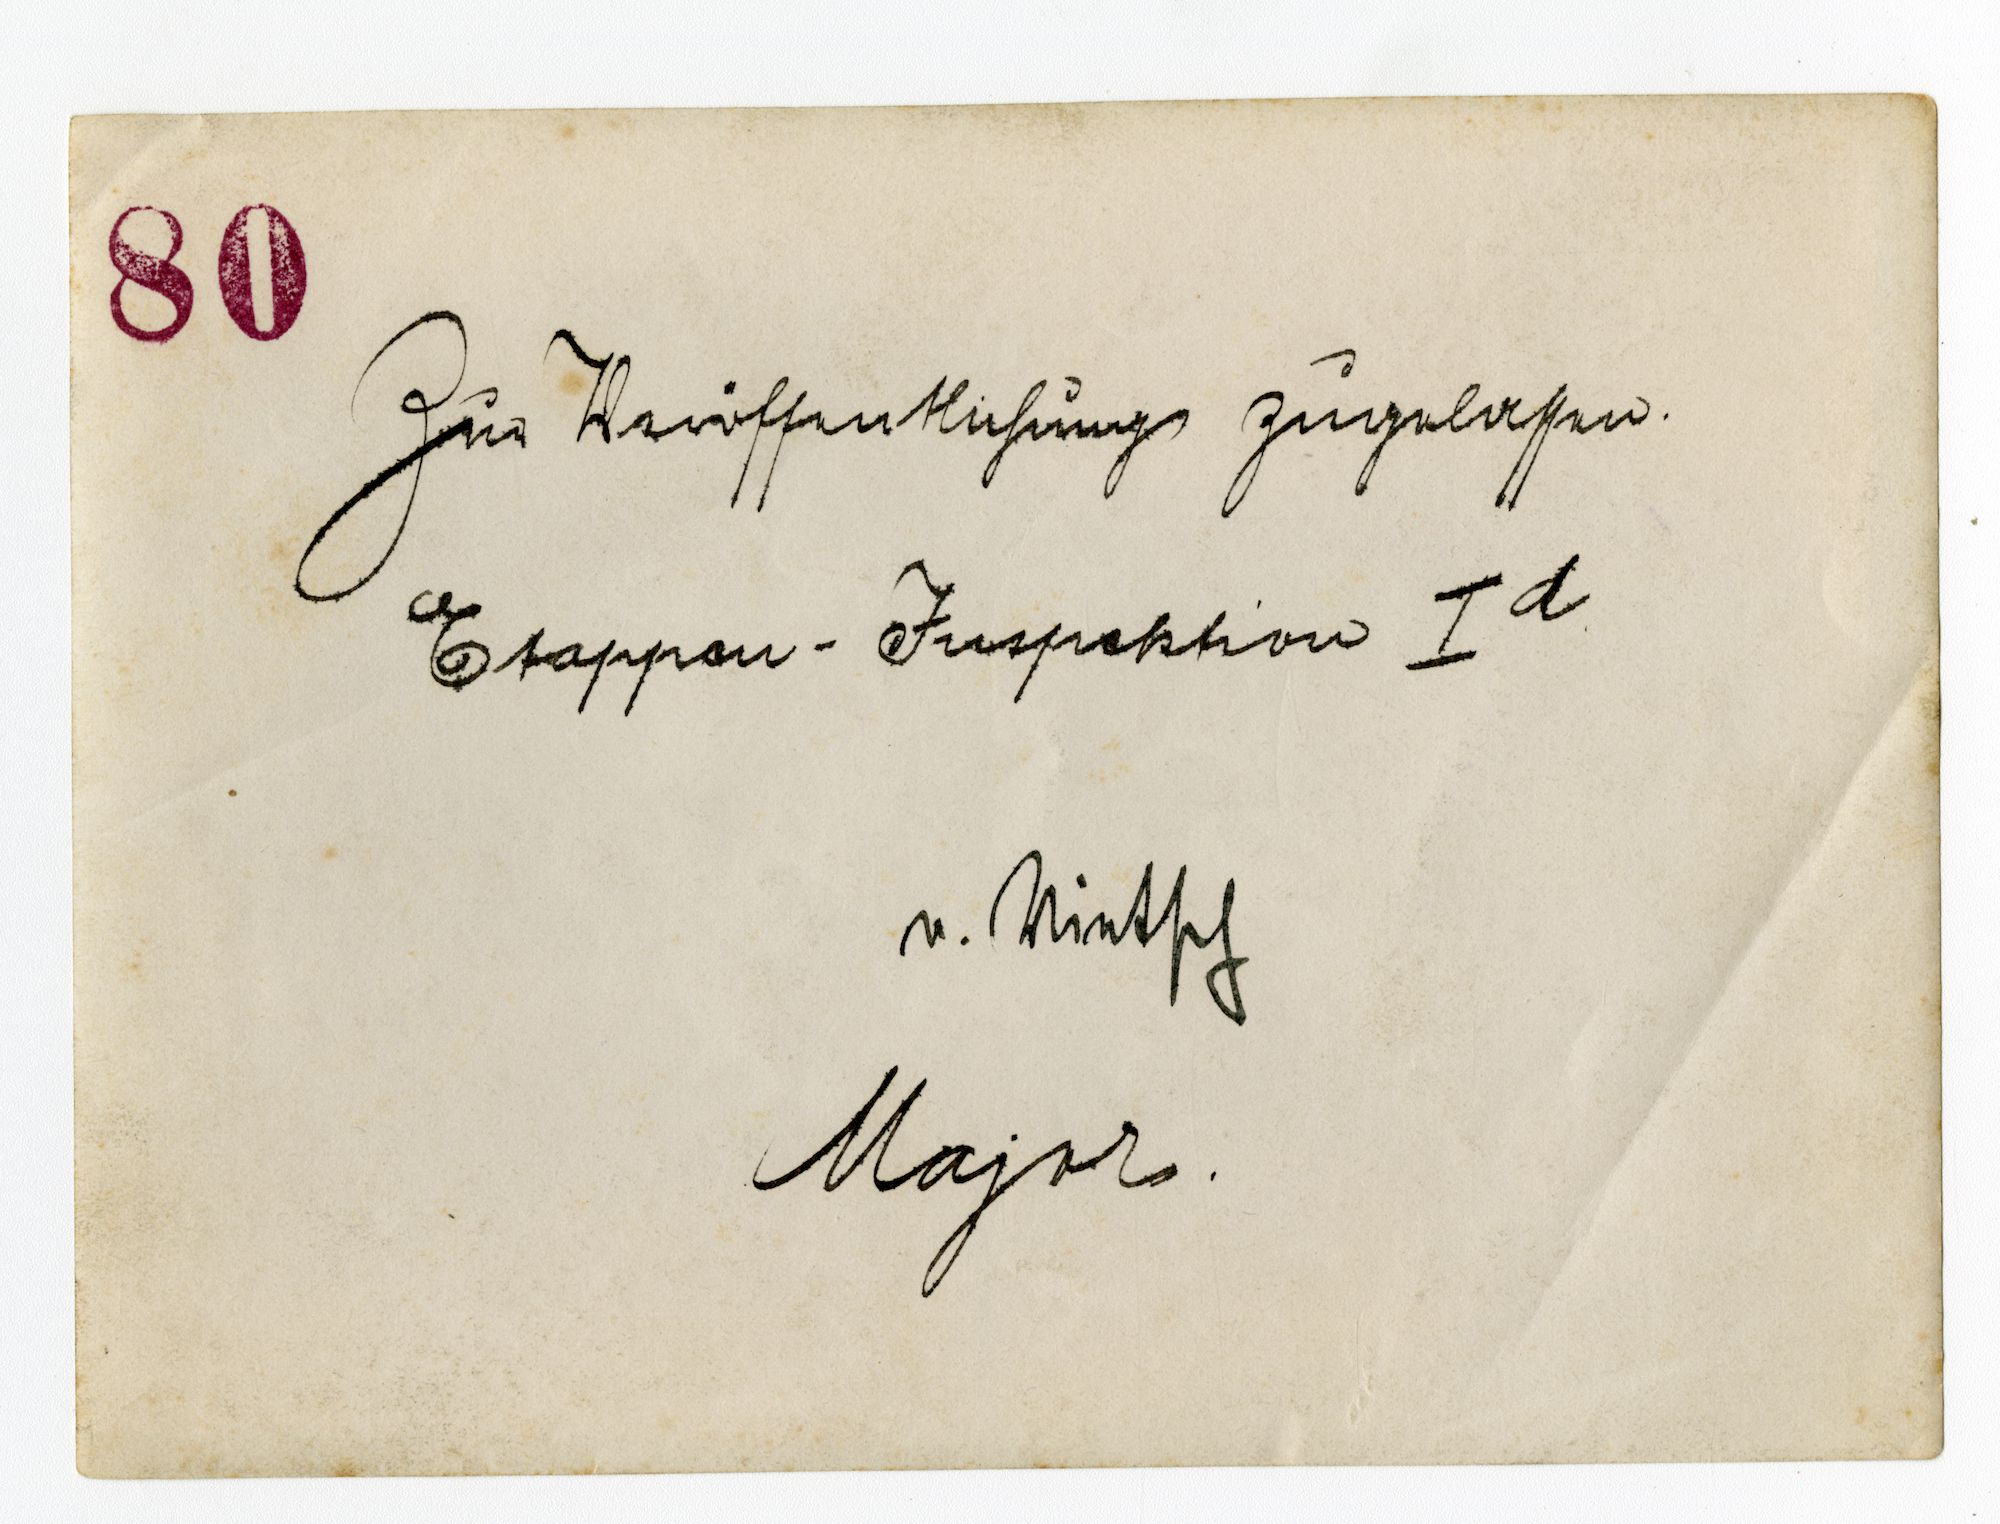 80
Zur Veröffentlichung zugelassen.
Etappen-Inspektion I d
v.
Major.